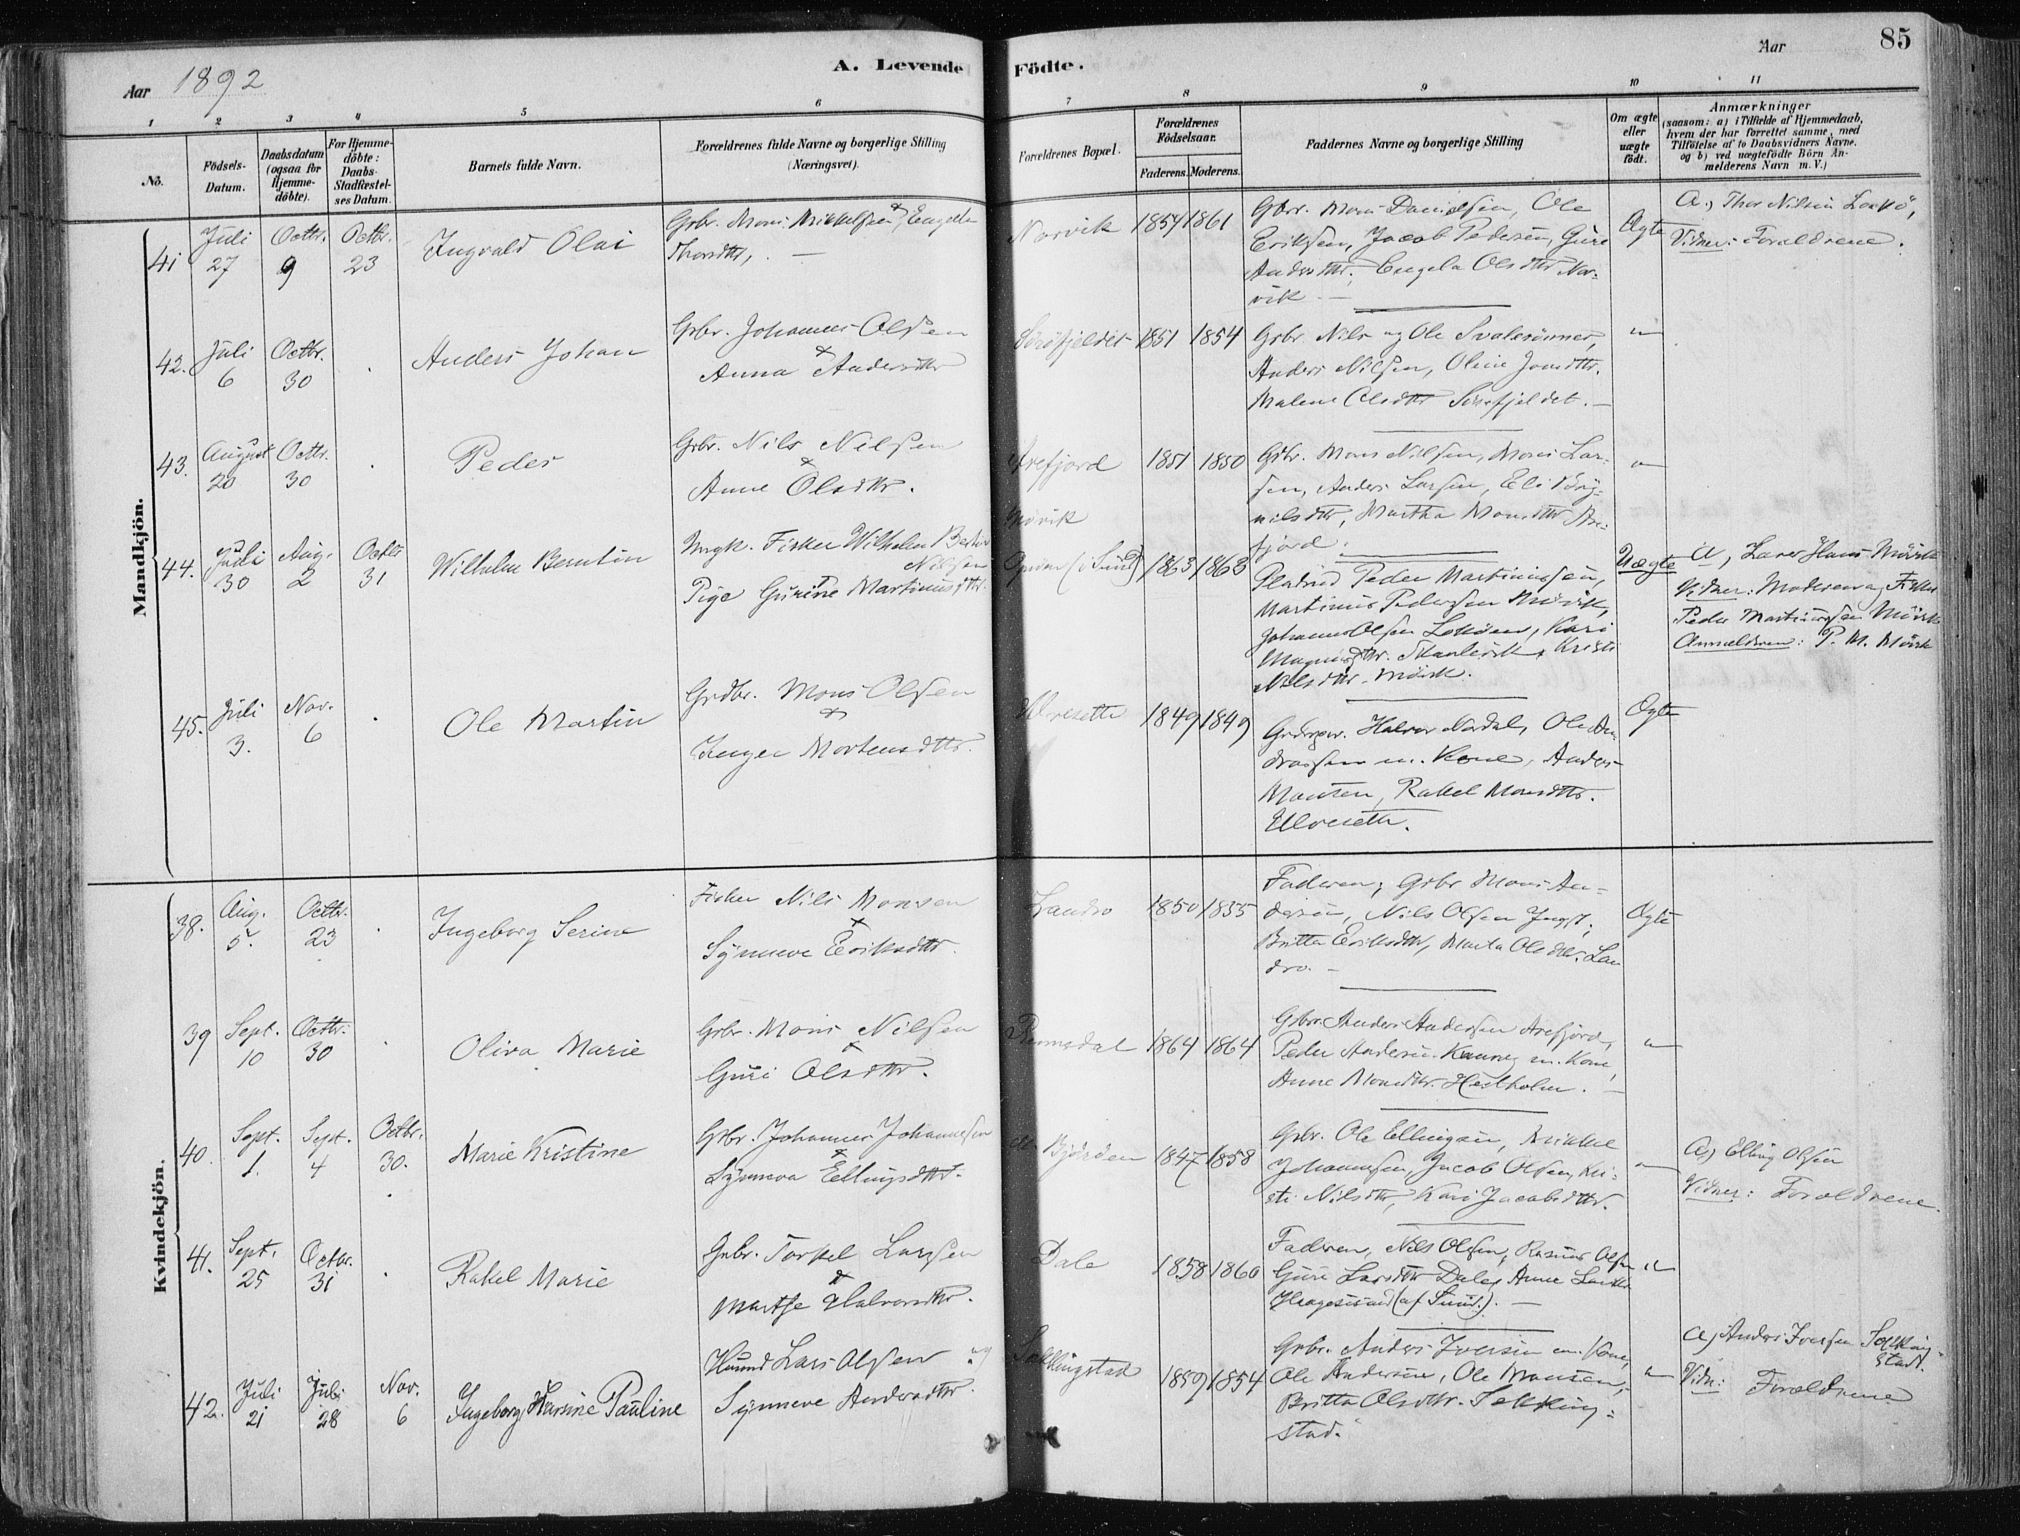 Aar 1892
A. Levende Födte.
Aar
85
1 2 3 4 5 6 7 8 9 10 11
No.
Födsels-
Datum.
Daabsdatum
(ogsaa for
Hjemme-
döbte).
For Hjemme-
döbte:
Daabs-
Stadfæstel-
ses Datum.
Barnets fulde Navn.
Forældrenes fulde Navne og borgerlige Stilling
(Næringsvei).
Forældrenes Bopæl.
Forældrenes
Födselsaar.
Faderens. Moderens.
Faddernes Navne og borgerlige Stilling
Om ægte
eller
uægte
födt.
Anmærkninger
(saasom: a) i Tilfælde af Hjemmedaab,
hvem der har forrettet samme, med
Tilföielse af to Daabsvidners Navne.
og b) ved uægtefödte Börn An-
melderens Navn m. V.)
Mandkjön.
41
Juli
27
Octbr.
9
Octbr.
23
Ingvald Olai
Grbr. Mons Mikkelsen & Engele
Thorsdtr.
Norvik
1854 1861
Gbr. Mons Danielsen, Ole
Eriksen, Jacob Pedersen, Guri
Andersdtr, Engela Olsdtr Nor-
vik
Ægte
a, Thor Nilsen
Vidner: Forældrene.
42.
Juli
6
Octbr.
30
Anders Johan
Grbr. Johannes Olsen
&
Anna Andersdtr
1851 1854
Grbr Nils og Ole
Anders Nilsen, Oline Jonsdtr.
Malene Olsdtr Sörefjeldet.
"
43.
August
20
Octbr.
30
Peder
Grbr. Nils Nilsen
&
Anne Olsdtr.
Arefjord
1851 1850
Grbr. Mons Nilsen, Mons Lar-
sen, Anders Larsen, Eli Bryn-
nilsdtr, Martha Monsdtr Are-
fjord.
"
44.
Juli
30
Aug.
2
Octbr
31
Wilhelm Berntin
Ungk. Fisker Wilhelm
Nilsen
Pige Gurine Martinusdtr.
Mövik
(i Sund)
1863 1863
Peder Martinussen,
Martinus Pedersen Mövik,
Johannes Olsen, Kari
Magnusdtr., Kristi
Nilsdtr. Mövik.
Uægte
a, Lærer Hans Mövik
Vidner: Moderen og Fisker
Peder Martinussen Mövik
Anmelderen: P. M. Mövik
45.
Juli
3.
Nov.
6
Ole Martin
Grdbr. Mons Olsen
&
Inger Mortensdtr.
Ulvesette
1849 1849
Halvor Nordal, Ole An-
dreassen m. Kone, Anders
Monsen, Rakel Monsdtr.
Ulvesette.
Ægte
Kvindekjön.
38.
Aug.
5.
Octbr.
23
Ingeborg Serine
Fisker Nils Monsen
&
Synneve Eriksdtr.
Landro
1850 1855
Faderen, Grbr Mons An-
dersen, Nils Olsen
Britta Eriksdtr, Marta Olsdtr. Lan-
dro.
Ægte
39
Sept.
10
Octbr.
30
Oliva Marie
Grbr. Mons Nilsen
&
Guri Olsdtr.
1864 1864
Grbr. Anders Andersen Arefjord,
Peder Andersen m. Kone,
Anne Monsdtr. Hestholm.
"
40.
Sept.
1.
Sept.
4
Octbr.
30.
Marie Kristine
Grbr. Johannes Johannesen
&
Synneva Ellingsdtr.
1847 1858
Grbr. Ole Ellingsen, Mikkel
Johannesen, Jacob Olsen, Kri-
sti Nilsdtr, Kari Jacobsdtr.
"
a, Elling Olsen
Vidner: Forældrene.
41.
Sept.
25
Octbr.
31
Rakel Marie
Grbr. Torkel Larsen
&
Martje Halvorsdtr.
Dale
1858 1860
Faderen, Nils Olsen, Rasmus Olsen,
Guri Larsdtr Dale, Anne
(af Sund).
"
42.
Juli
21
Juli
28
Nov.
6
Ingeborg Hansine Pauline
Husmd Lars Olsen og
Synneve Andersdtr.
Sekkingstad
1859 1854
Grbr. Anders Iversen m. Kone,
Ole Andersen, Ole Monsen,
Britta Olsdtr. Sekking-
stad.
"
a, Anders Iversen Sekking-
stad.
Vidn: Forældrene